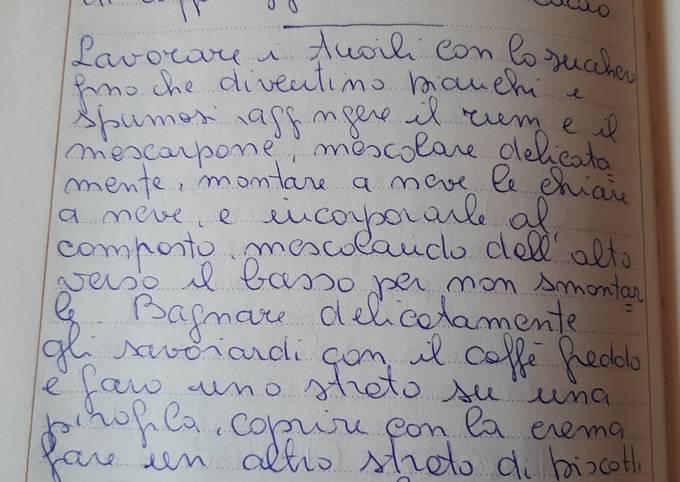 cacao
Lavorare i tuorli con lo zucchero
fino che diventino bianchi e
spumosi, aggungere il rum e il
mescarpone, mescolare delicata=
mente, montare a neve le chiare
a neve, e incorporarle al
composto, mescolando dall'alto
verso il basso per non smontar=
le. Bagnare delicatamente
gli savoiardi con il caffè freddo
e fare uno strato su una
pirofila, coprire con la crema
fare un altro strato di biscotti